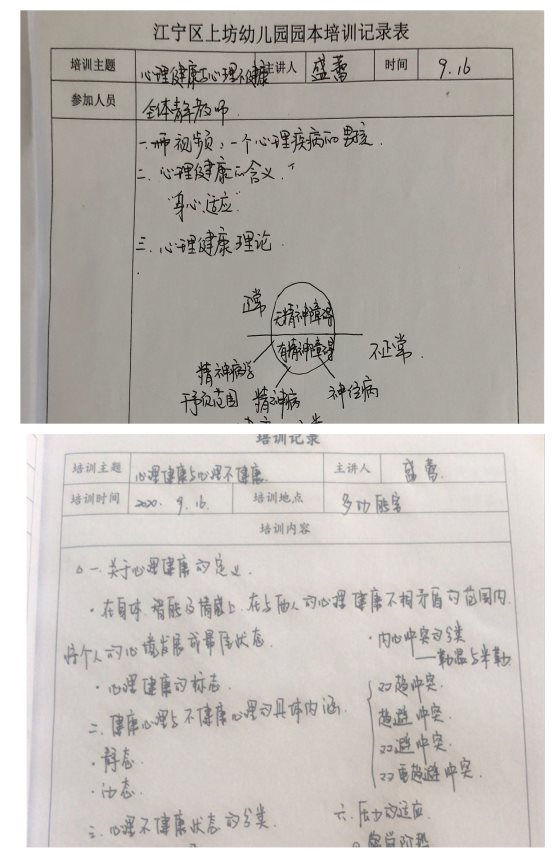 江宁区上坊幼儿园园本培训记录表
培训主题 心理健康与心理不健康 主讲人 盛蕾 时间 9.16
参加人员 全体教师
一. 视频：一个心理疾病的男孩
二. 心理健康的含义.
"身心适应"
三. 心理健康理论.
正常
无精神障碍
有精神障碍 不正常.
精神病学
干预范围 精神病 神经病
培训记录
培训主题 心理健康与心理不健康. 主讲人 盛蕾
培训时间 2020. 9.16. 培训地点 多功能室
培训内容
一. 关于心理健康的定义.
·在身体.智能及情感上.在与他人的心理健康不相矛盾的范围内.
将个人的心境发展成最佳状态
·心理健康的标志.
二. 健康心理与不健康心理的具体内涵.
·静态.
·动态.
三. 心理不健康状态的分类.
·内心冲突的分类
——勒温与米勒
双趋冲突.
趋避冲突.
双避冲突.
双重趋避冲突.
六. 压力的适应.